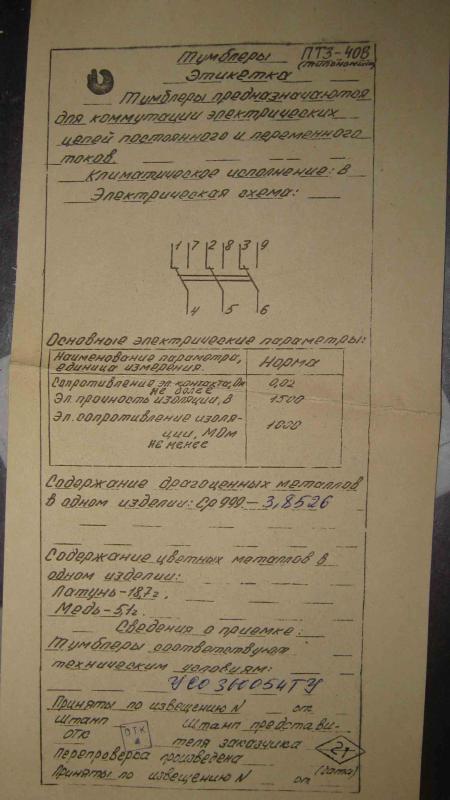 Тумблеры ПТ3-40В
Этикетка (типономинал)
Тумблеры предназначаются
для коммутации электрических
цепей постоянного и переменного
токов.
Климатическое исполнение: В
Электрическая схема:
1 7 2 8 3 9
4 5 6
Основные электрические параметры:
Наименование параметра, единица измерения. Норма
Сопротивление эл. контакта, Ом не более 0,02
Эл. прочность изоляции, В 1500
Эл. сопротивление изоля-
ции, МОм 1000
не менее
Содержание драгоценных металлов
в одном изделии: Ср 999.- 3,8526
Содержание цветных металлов в
одном изделии:
Латунь-18,7г.
Медь-5,1г.
Сведения о приемке:
Тумблеры соответствуют
техническим условиям:
УСО 360054ТУ
Приняты по извещению N от
Штамп Штамп представи-
ОТК ОТК 4 теля заказчика 21
Перепроверка произведена (дата)
Приняты по извещению N от